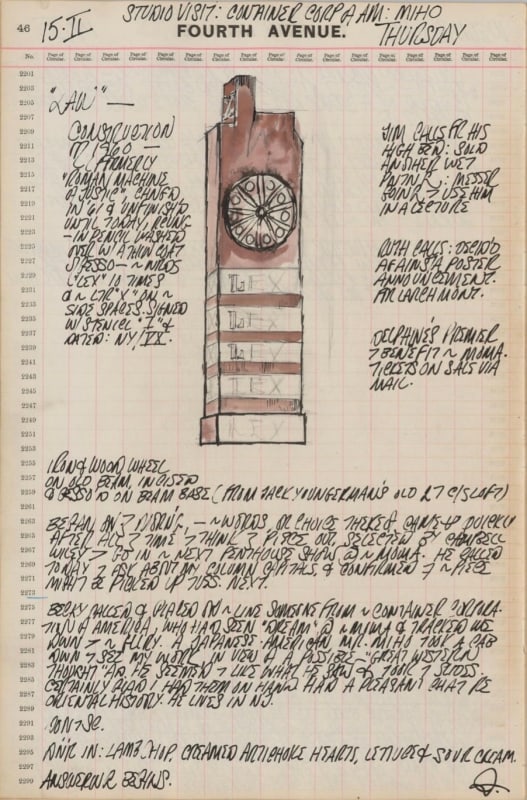 STUDIO VISIT: CONTAINER CORP of AM: MIHO
46 15·II FOURTH AVENUE. THURSDAY
No. Page of Circular. Page of Circular. Page of Circular. Page of Circular. Page of Circular. Page of Circular. Page of Circular. Page of Circular. Page of Circular. Page of Circular. Page of Circular. Page of Circular.
2201
2203
2205
2207
2209
2211
2213
2215
2217
2219
2221
2223
2225
2227
2229
2231
2233
2235
2237
2239
2241
2243
2245
2247
2249
2251
2253
2255
2257
2259
2261
2263
2265
2267
2269
2271
2273
2275
2277
2279
2281
2283
2285
2287
2289
2291
2293
2295
2297
2299
"LAW" —
CONSTRUCTION
1960 —
FORMERLY
"ROMAN MACHINE
of JUSTICE", CHANGED
IN 61 & UNFINISHED
UNTIL TODAY,
— IN PENCIL WASHED
OVER W A THIN COAT
GESSO — ~ WORDS
"LEX" 10 TIMES
~ LTR "X" ON ~
SIDE SPACES. SIGNED
W STENCIL "I" &
DATED: NY
LEX
LEX
LEX
LEX
LEX
JIM CALLS FR HIS
HIGH BED: SOLD
ANOTHER WET
USE HIM
IN A LECTURE
RUTH CALLS: DECID'D
AGAINST A POSTER
ANNOUNCEMENT.
FOR LARCHMONT.
DELPHINE'S PREMIER
BENEFIT ~ MOMA.
TICKETS ON SALE VIA
MAIL.
IRON & WOOD WHEEL
ON OLD BEAM, INCISED
GESSO'D ON BEAM BASE (FROM JACK YOUNGERMAN'S OLD 27 C/S LOFT)
BEGAN ON WORDS, OR CHOICE THERE of CAME UP QUICKLY
AFTER ALL TIME THINK PIECE OUT, SELECTED BY CAMPBELL
WILEY GO IN ~ NEXT PENTHOUSE SHOW @ ~ MOMA. HE CALLED
TODAY ASK ABOUT MY COLUMN CAPITALS, & CONFIRMED ~ PIECE
MIGHT BE PICKED UP TUES. NEXT.
BECKY CALLED & PLACED ON ~ LINE SOMEONE FROM ~ CONTAINER CORPORA-
TION of AMERICA, WHO HAD SEEN "DREAM" @ ~ MOMA & TRACKED ME
DOWN ~ GALLERY. A JAPANESE-AMERICAN MR. MIHO TOOK A CAB
DOWN SEE MY WORK IN VIEW of A POSSIBLE "GREAT WESTERN
THOUGHT" AD. HE SEEMED LIKE WHAT HE SAW & TOOK 2 SLIDES
CERTAINLY GLAD I HAD THEM ON HAND. HAD A PLEASANT CHAT RE
ORIENTAL HISTORY. HE LIVES IN NJ.
DIN'R IN: LAMB CHOP, CREAMED ARTICHOKE HEARTS, LETTUCE & SOUR CREAM.
ANSWERING BEGINS.